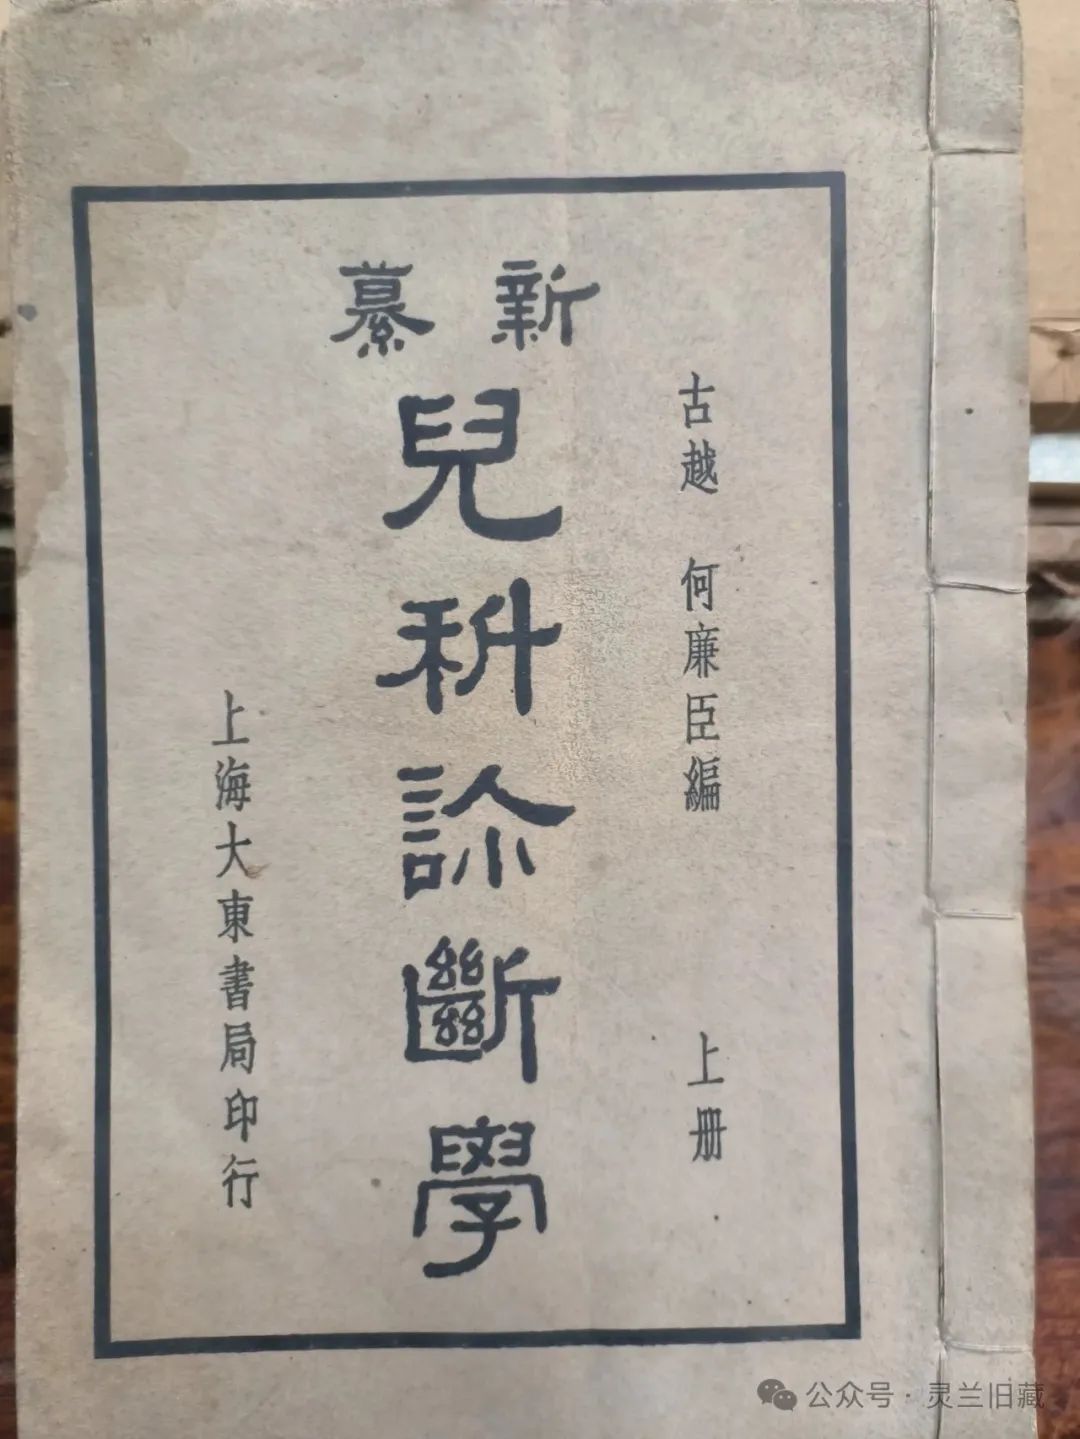 新纂
兒科診斷學
古越 何廉臣編 上册
上海大東書局印行
公众号·灵兰旧藏